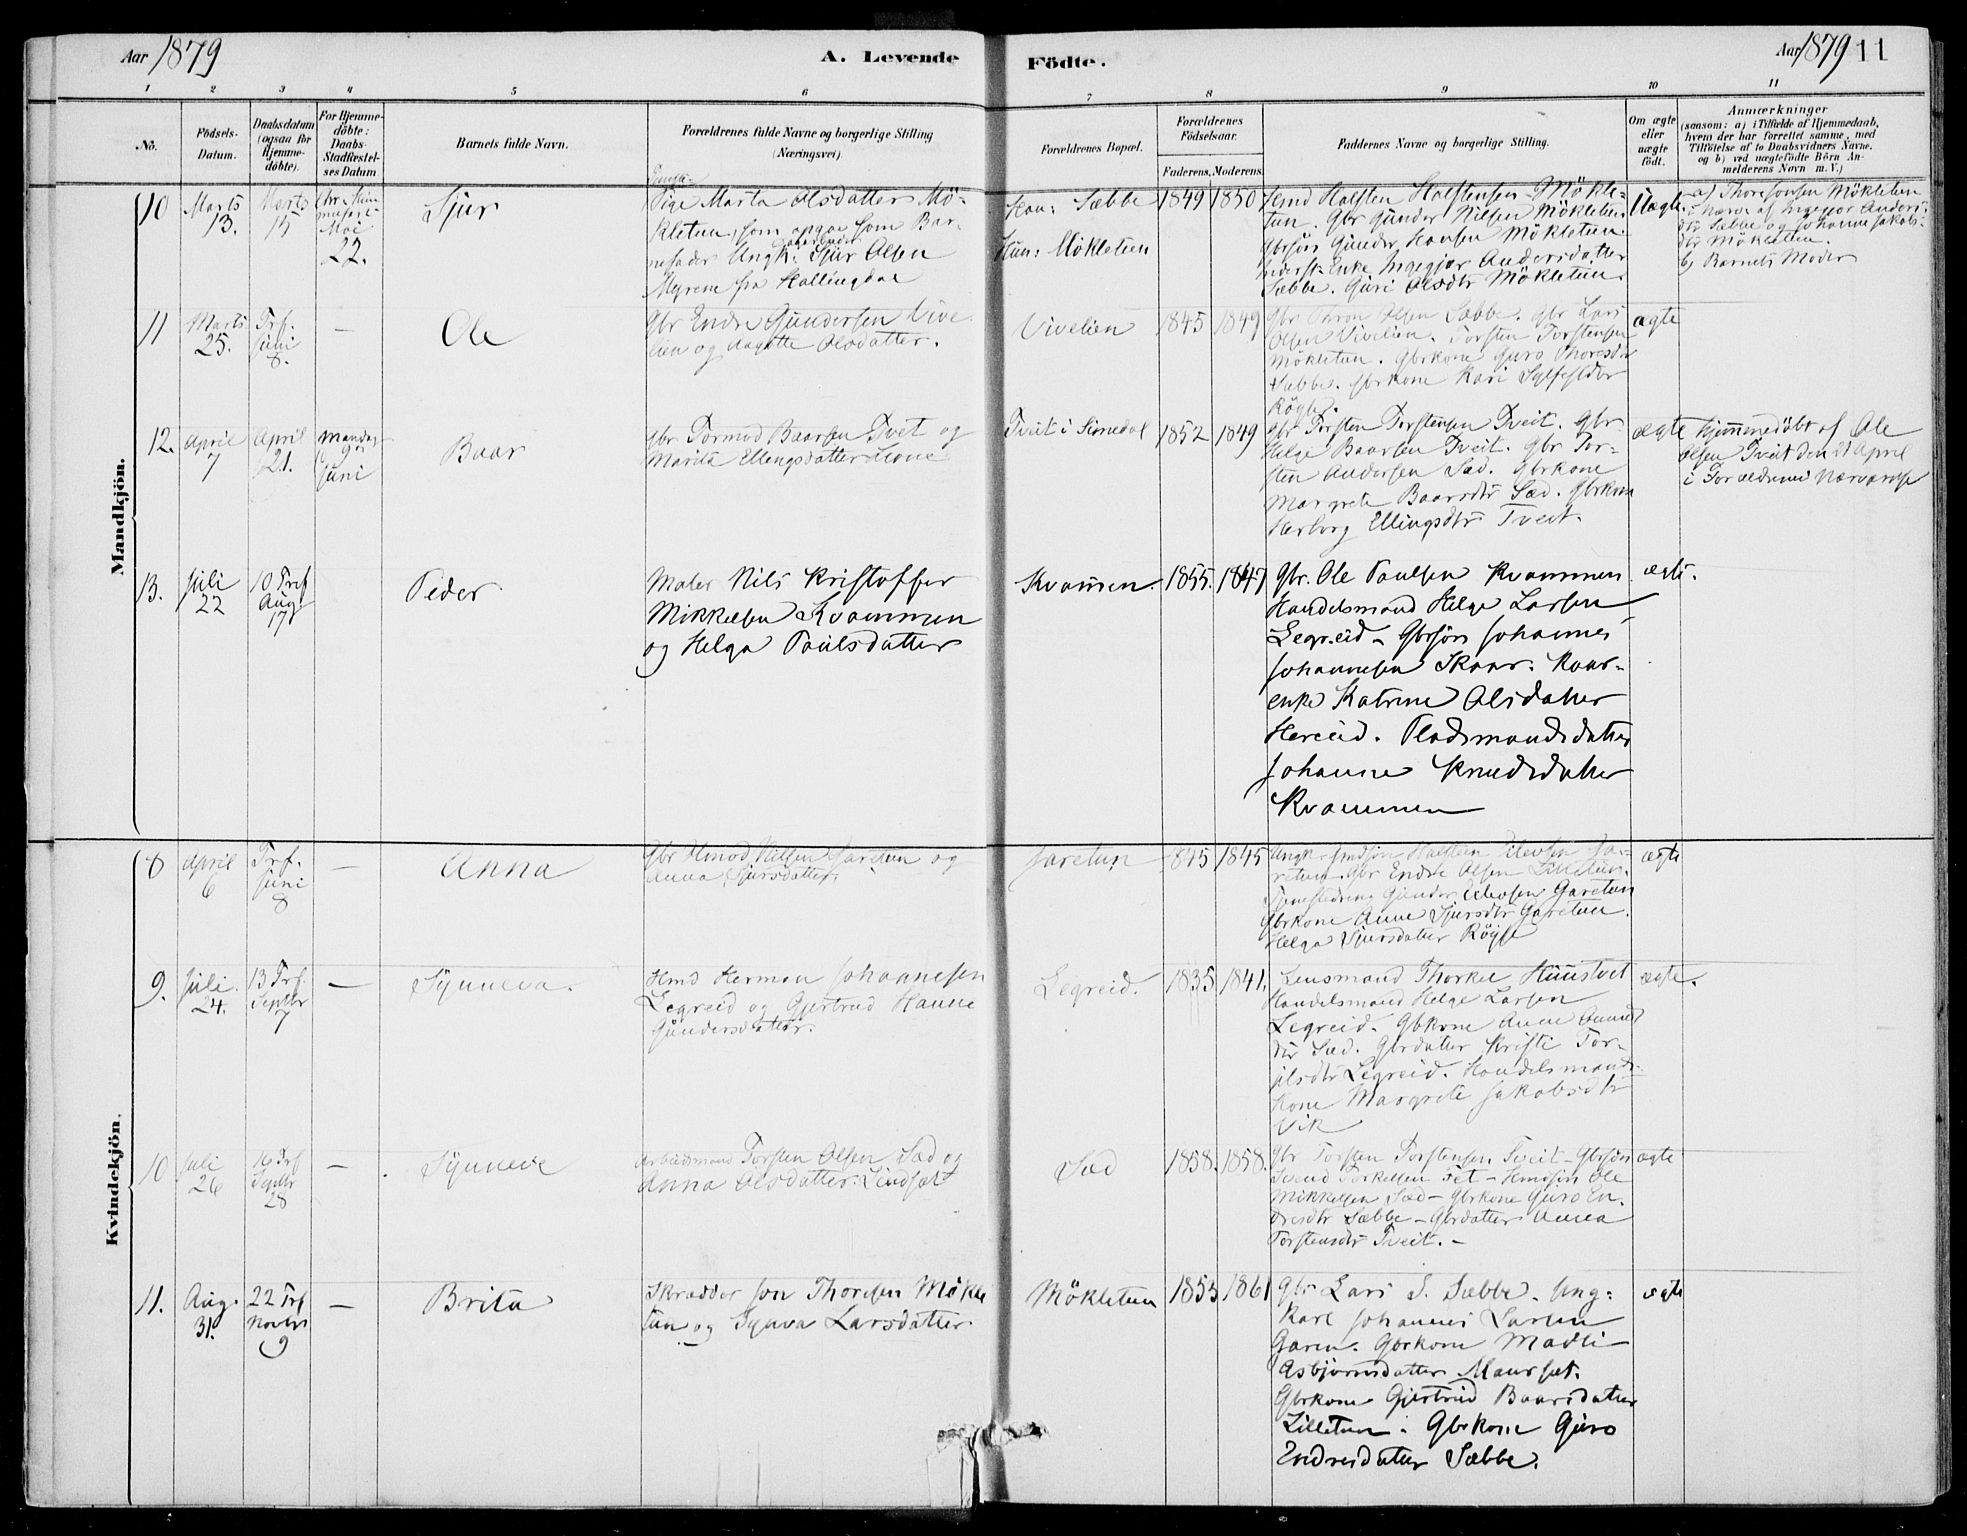 Aar 1879
A. Levende
Födte.
Aar 1879 11
1 2 3 4 5 6 7 8 9 10 11
No.
Födsels-
Datum.
Daabsdatum
(ogsaa for
Hjemme-
döbte).
For Hjemme-
döbte:
Daabs-
Stadfæstel-
ses Datum
Barnets fulde Navn.
Forældrenes fulde Navne og borgerlige Stilling
(Næringsvei).
Forældrenes Bopæl.
Forældrenes
Födselsaar.
Faderens. Moderens.
Faddernes Navne og borgerlige Stilling.
Om ægte
eller
uægte
födt.
Anmærkninger
(saasom: a) i Tilfælde af Hjemmedaab,
hvem der har forrettet samme, med
Tilföielse af to Daabsvidners Navne.
og b) ved uægtefödte Börn An-
melderens Navn m. V.)
Mandkjön.
10
Marts
13.
Marts
15
Mai
22.
Sjur
Pige Marta Olsdatter Mö-
kletun, som opgav som Bar-
nefader Ungk. Sjur Olsen
Myrene fra Hallingdal
Han: Sæbbe
Hun: Mökletun
1849 1850
Hmd Halsten Halstensen Mökle-
tun. Gbr Gunder Nilsen Mökletun
Gbrsön Gunder Hansen Mökletun
Enke Ingegjær Andersdatter
Sæbbe. Guri Olsdtr Mökletun.
Uægte.
a) Thore Jonsen Mökletun
i Nærv. af Ingegjær Anders-
dtr Sæbbe og Johanne Jakobs-
dtr Mökletun.
b) Barnets Moder
11
Marts
25.
Trf.
Juni
8.
—
Ole
Gbr Endre Gundersen Vive
lien og Aagotte Olsdatter.
Vivelien
1845 1849
Gbr Olsen Sæbbe. Gbr Lars
Olsen Vivelien. Torsten Torstensen
Mökletun. Gbrkone Guro Thoresdtr
Sæbbe. Gbrkone Kari
Röyse.
ægte
12.
April
7
April
21.
Mandag
9
Juni
Baar
Gbr Tormod Baarsen Tveit og
Marita Ellingsdatter
Tveit i Simedal
1852 1849
Gbr Torsten Torstensen Tveit. Gbr
Helge Baarsen Tveit. Gbr Tor-
sten Andersen Sæd. Gbrkone
Margrete Baarsdtr Sæd. Gbrkone
Herborg Ellingsdtr Tveit.
ægte
Hjemmedöbt af Ole
Olsen Tveit den 21 April
i Foraeldrenes Nærværelse
13.
Juli
22
10 Trf
Aug.
17
Peder
Maler Nils Kristoffer
Mikkelsen Kvammen
og Helga Paulsdatter
Kvammen.
1855. 1847
Gbr. Ole Paulsen Kvammen
Handelsmand Helge Larsen
Legreid – Gbrsön Johannes
Johannesen Skaar. Kaar-
enke Katrine Olsdatter
Hereid. Pladsmandsdatter
Johanne Knudsdatter
Kvammen
ægte.
Kvindekjön.
8
April
6
Trf.
Juni
8
—
Anna
Gbr Asmod Nilsen Garetun og
Anna Sjursdatter.
Garetun
1845 1845
Ungk. Hmdsön Halsten Ga-
retun. Gbr Endre Olsen Lilletun.
Tjenestedreng Gunder Garetun
Gbrkone Anne Sjursdtr Garetun.
Helga Sjursdatter Röyse
ægte
9.
Juli.
24.
13 Trf.
Septbr
7
—
Synneva.
Hmd Herman Johannesen
Legreid og Gjertrud Hanne
Gundersdatter.
Legreid.
1835 1841.
Lensmand Thorkel Hunstvet
Handelsmand Helge Larsen
Legreid. Gbkone Anne
dtr Sæd. Gbrdatter Kristi Tor-
jilsdtr Legreid. Handelsmands-
kone Margrete Jakobsdtr
Vik
ægte.
10
Juli
26
16 Trf
Septbr
28
—
Synneve
Arbeidsmand Torsten Olsen Sæd og
Anna Olsdatter Lindset
Sæd
1858. 1858.
Gbr Torsten Torstensen Tveit – Gbrsön
Svend Torkelsen Fet – Hmdsön Ole
Mikkelsen Sæd – Gbrkone Guro En-
dresdtr Sæbbe – Gbrdatter Anna
Torstensdtr Tveit. –
ægte
11.
Aug.
31.
22 Trf
Novbr
9
—
Brita
Skrædder Jon Thoresen Mökle
tun og Synva Larsdatter
Mökletun
1853 1861
Gbr Lars S. Sæbbe. Ung-
karl Johannes Larsen
Garen. Gbrkone Madli
Asbjörnsdatter Maurset.
Gbrkone Gjertrud Baarsdatter
Lilletun. Gbrkone Guro
Endresdatter Sæbbe.
ægte